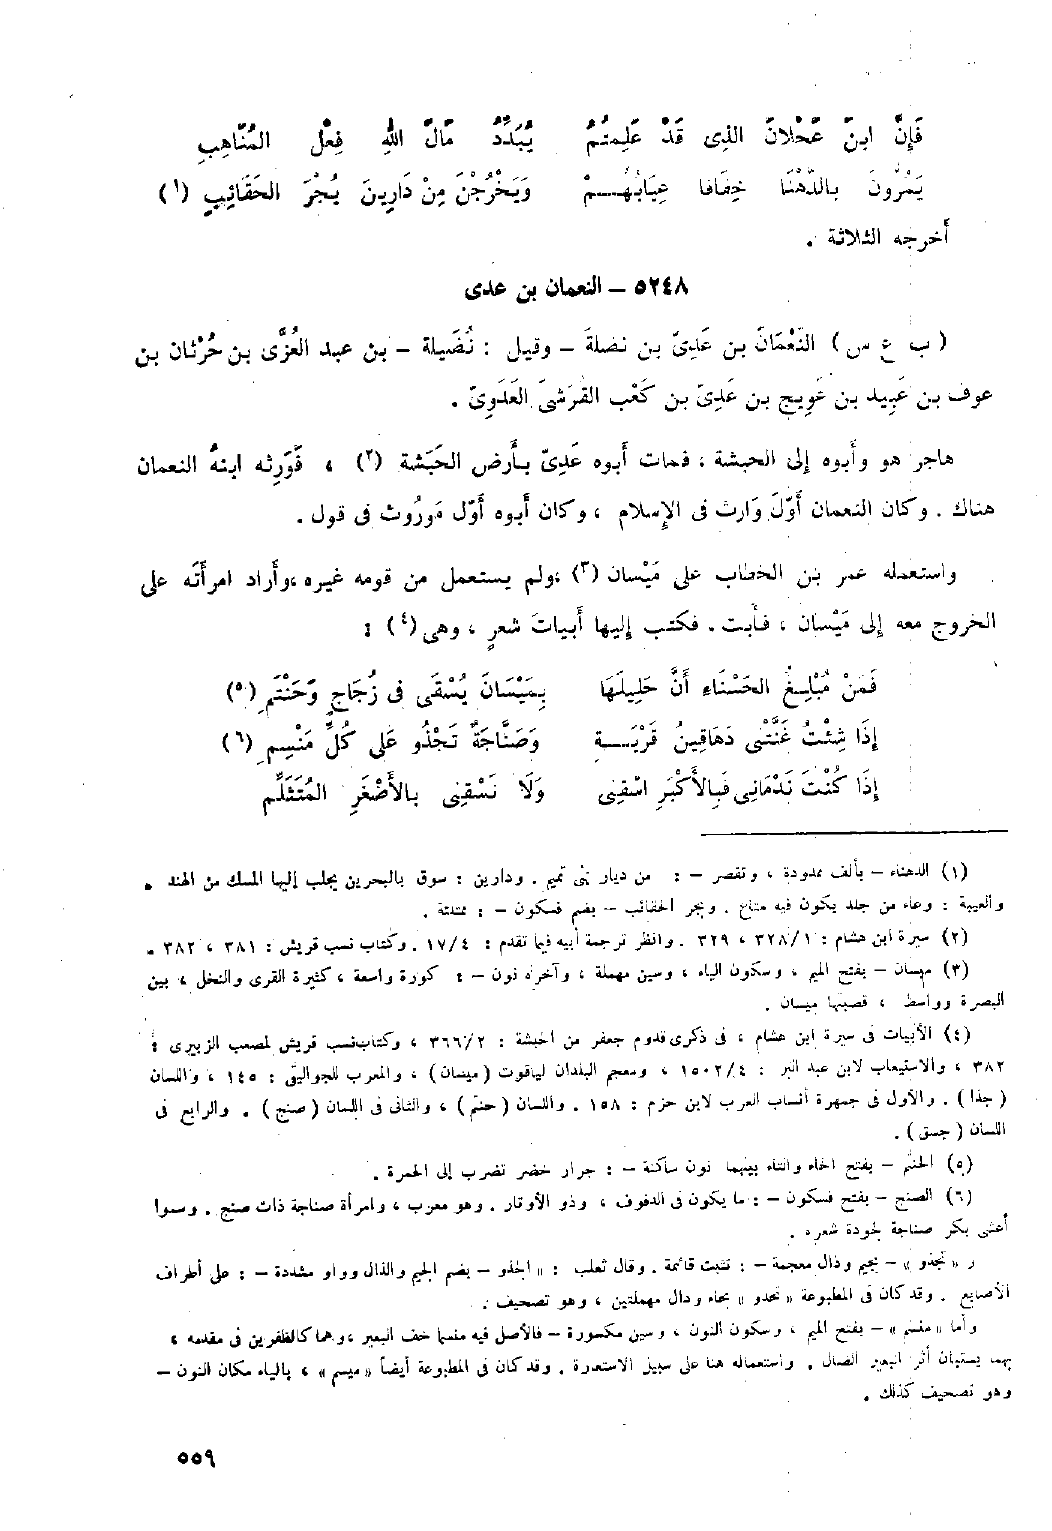 فَإِنَّ ابنَ عَجْلَانَ الذى قَدْ عَلِمتُمُ يُبَدِّدُ مَالَ اللهِ فِعْلَ المُنَاهِبِ
يَمُرُّونَ بالدَّهْنَا خِفَافا عِيَابُهُـــمْ وَيَخْرُجْنَ مِنْ دَارِينَ بُجْرَ الحَقَائِبِ (١)
أخرجه الثلاثة .
٥٢٤٨ – النعمان بن عدى
( ب ع س ) النُّعْمَانُ بن عَدِىّ بن نضلةَ – وقيل : نُضَيلة – بن عبد العُزَّى بن حُرْثان بن
عوف بن عَبِيد بن عَوِيج بن عَدِىّ بن كَعْب القُرَشىّ العَدَوِىّ .
هاجر هو وأبوه إلى الحبشة ، فمات أبوه عَدِىّ بأرض الحَبَشة (٢) ، فَوَرِثه ابنهُ النعمان
هناك . وكان النعمان أوّلَ وَارث فى الإسلام ، وكان أبوه أوّل مَورُوث فى قول .
واستعمله عمر بن الخطاب على مَيْسان (٣) ،ولم يستعمل من قومه غيره ،وأراد امرأتَه على
الخروج معه إلى مَيْسان ، فأبت . فكتب إليها أبياتَ شعرٍ ، وهى (٤) :
فَمَنْ مُبْلِغُ الحَسْنَاءِ أنَّ حَلِيلَهَا بِمَيْسَانَ يُسْقَى فى زُجَاجٍ وَحَنْتَمِ (٥)
إذَا شِئْتُ غَنَّتْنى دَهَاقِينُ قَرْيَــةٍ وَصَنَّاجَةٌ تَجْذُو عَلى كُلِّ مَنْسِمِ (٦)
إذَا كُنْتَ نَدْمَانِى فَبِالأَكْبَرِ اسْقِنى وَلَا تَسْقِنِى بالأَصْغَرِ المُتَثَلِّمِ
(١) الدهناء – بألف ممدودة ، وتقصر – : من ديار بنى تميم . ودارين : سوق بالبحرين يجلب إليها المسك من الهند .
والعيبة : وعاء من جلد يكون فيه متاع . وبجر الحقائب – بضم فسكون – : ممتلئة .
(٢) سيرة ابن هشام : ١/ ٣٢٨ ، ٣٢٩ . وانظر ترجمة أبيه فيما تقدم : ٤/ ١٧ . وكتاب نسب قريش : ٣٨١ ، ٣٨٢ .
(٣) ميسان – بفتح الميم ، وسكون الياء ، وسين مهملة ، وآخره نون – : كورة واسعة ، كثيرة القرى والنخل ، بين
البصرة وواسط ، قصبتها ميسان .
(٤) الأبيات فى سيرة ابن هشام ، فى ذكرى قدوم جعفر من الحبشة : ٢/ ٣٦٦ ، وكتاب نسب قريش لمصعب الزبيرى :
٣٨٢ ، والاستيعاب لابن عبد البر : ٤/ ١٥٠٢ ، ومعجم البلدان لياقوت (ميسان) ، والمعرب للجواليقى : ١٤٥ ، واللسان
(جذا) . والأول فى جمهرة أنساب العرب لابن حزم : ١٥٨ . واللسان (حنتم) ، والثانى فى اللسان (صنج) . والرابع فى
اللسان (جسق) .
(٥) الحنتم – بفتح الحاء والتاء بينهما نون ساكنة – : جرار خضر تضرب إلى الحمرة .
(٦) الصنج – بفتح فسكون – : ما يكون فى الدفوف ، وذو الأوتار . وهو معرب ، وامرأة صناجة ذات صنج . وسموا
أعشى بكر صناجة لجودة شعره .
و « تجذو » – بجيم وذال معجمة – : تثبت قائمة . وقال ثعلب : « الجذو – بضم الجيم والذال وواو مشددة – : على أطراف
الأصابع . وقد كان فى المطبوعة « تحدو » بحاء ودال مهملتين ، وهو تصحيف .
وأما « منسم » – بفتح الميم ، وسكون النون ، وسين مكسورة – فالأصل فيه منسما خف البعير ،وهما كالظفرين فى مقدمه ،
بهما يستبان أثر البعير الضال . واستعماله هنا على سبيل الاستعارة . وقد كان فى المطبوعة أيضاً « ميسم » ، بالياء مكان النون –
وهو تصحيف كذلك .
٥٥٩